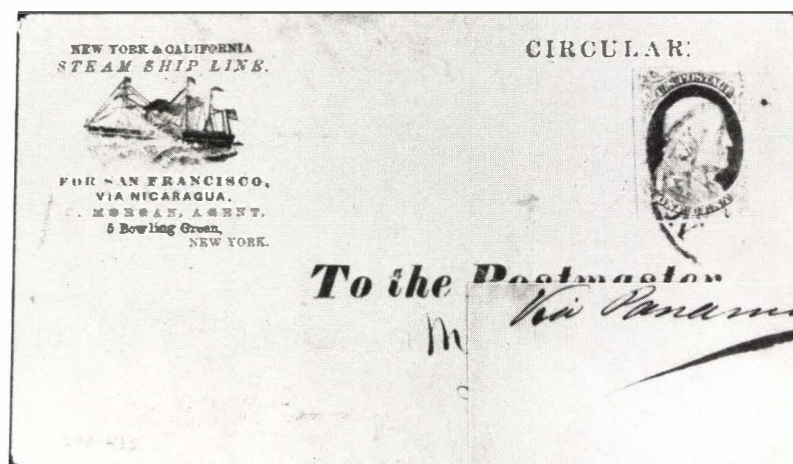 NEW YORK & CALIFORNIA
STEAM SHIP LINE.
FOR SAN FRANCISCO,
VIA NICARAGUA.
C. MORGAN, AGENT.
5 Bowling Green,
NEW YORK.
CIRCULAR.
U.S. POSTAGE
ONE CENT
To the Postmaster
M
Via Panama